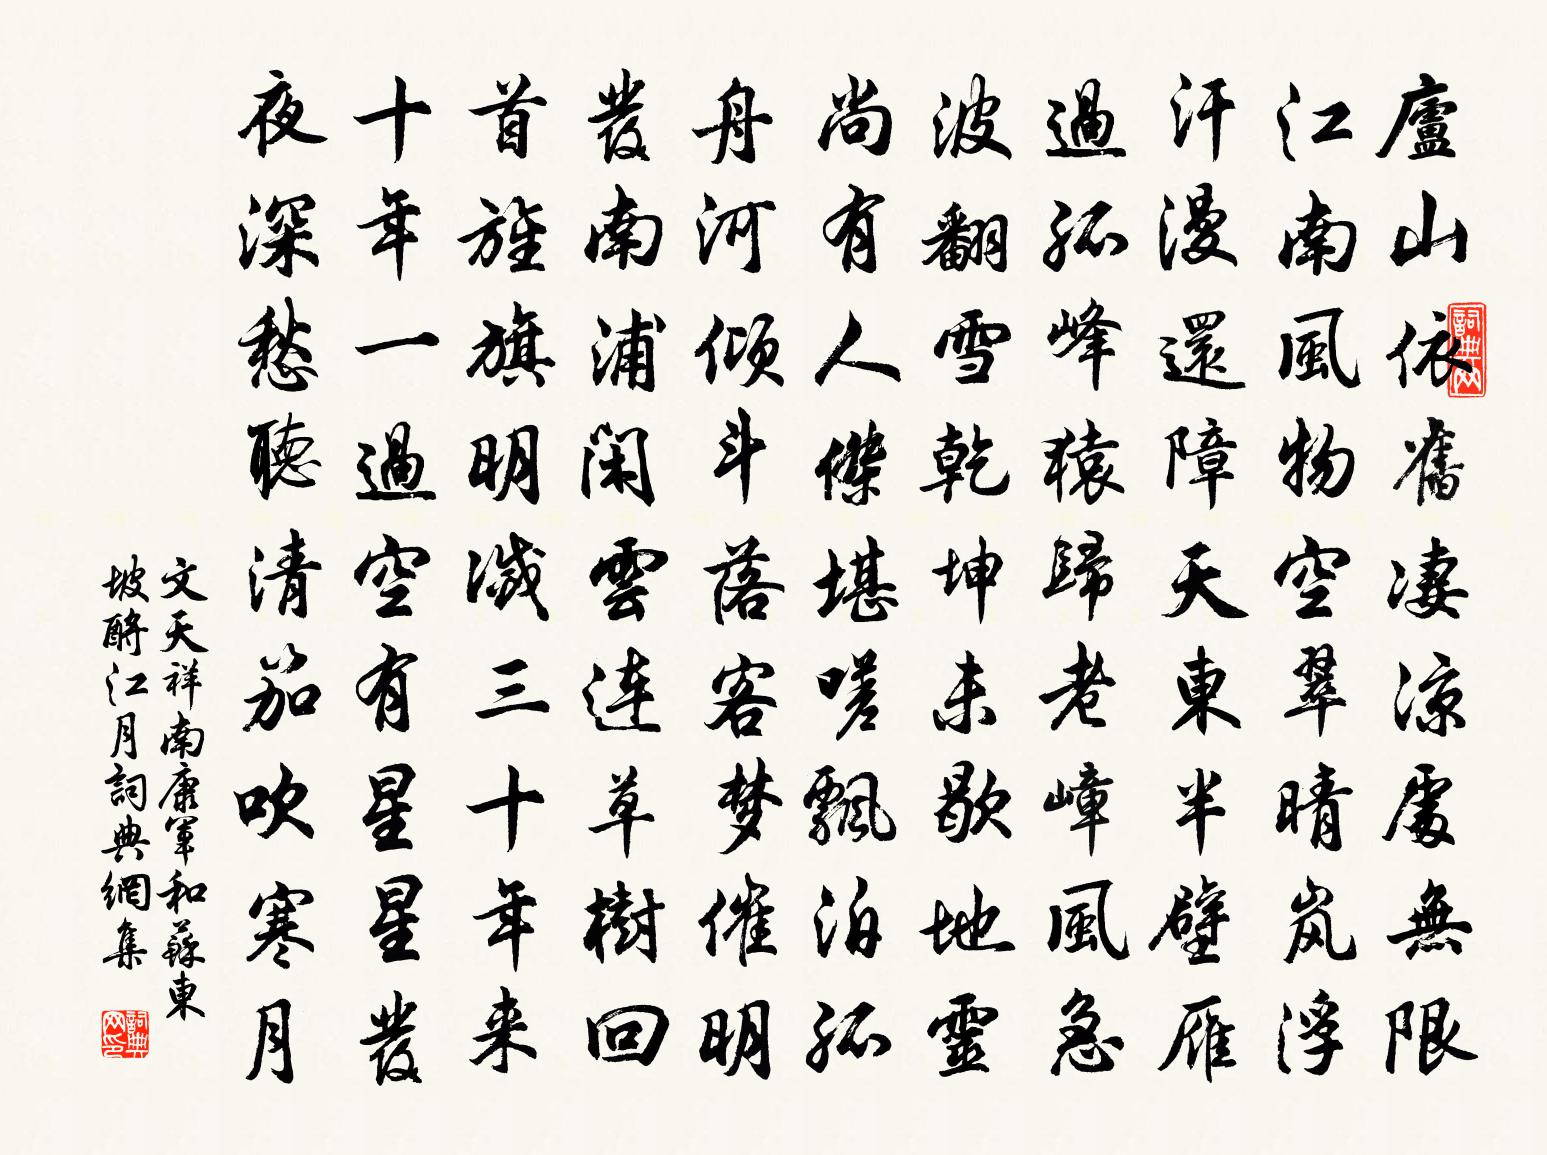 廬山依舊凄涼處無限
江南風物空翠晴岚浮
汗漫還障天東半壁雁
過孤峰猿歸老嶂風急
波翻雪乾坤未歇地靈
尚有人傑堪嗟飄泊孤
舟河傾斗落客梦催明
發南浦閑雲连草樹回
首旌旗明滅三十年来
十年一過空有星星發
夜深愁聽清笳吹寒月
文天祥南康軍和蘇東
坡酹江月詞典網集
詞典网
詞典网印